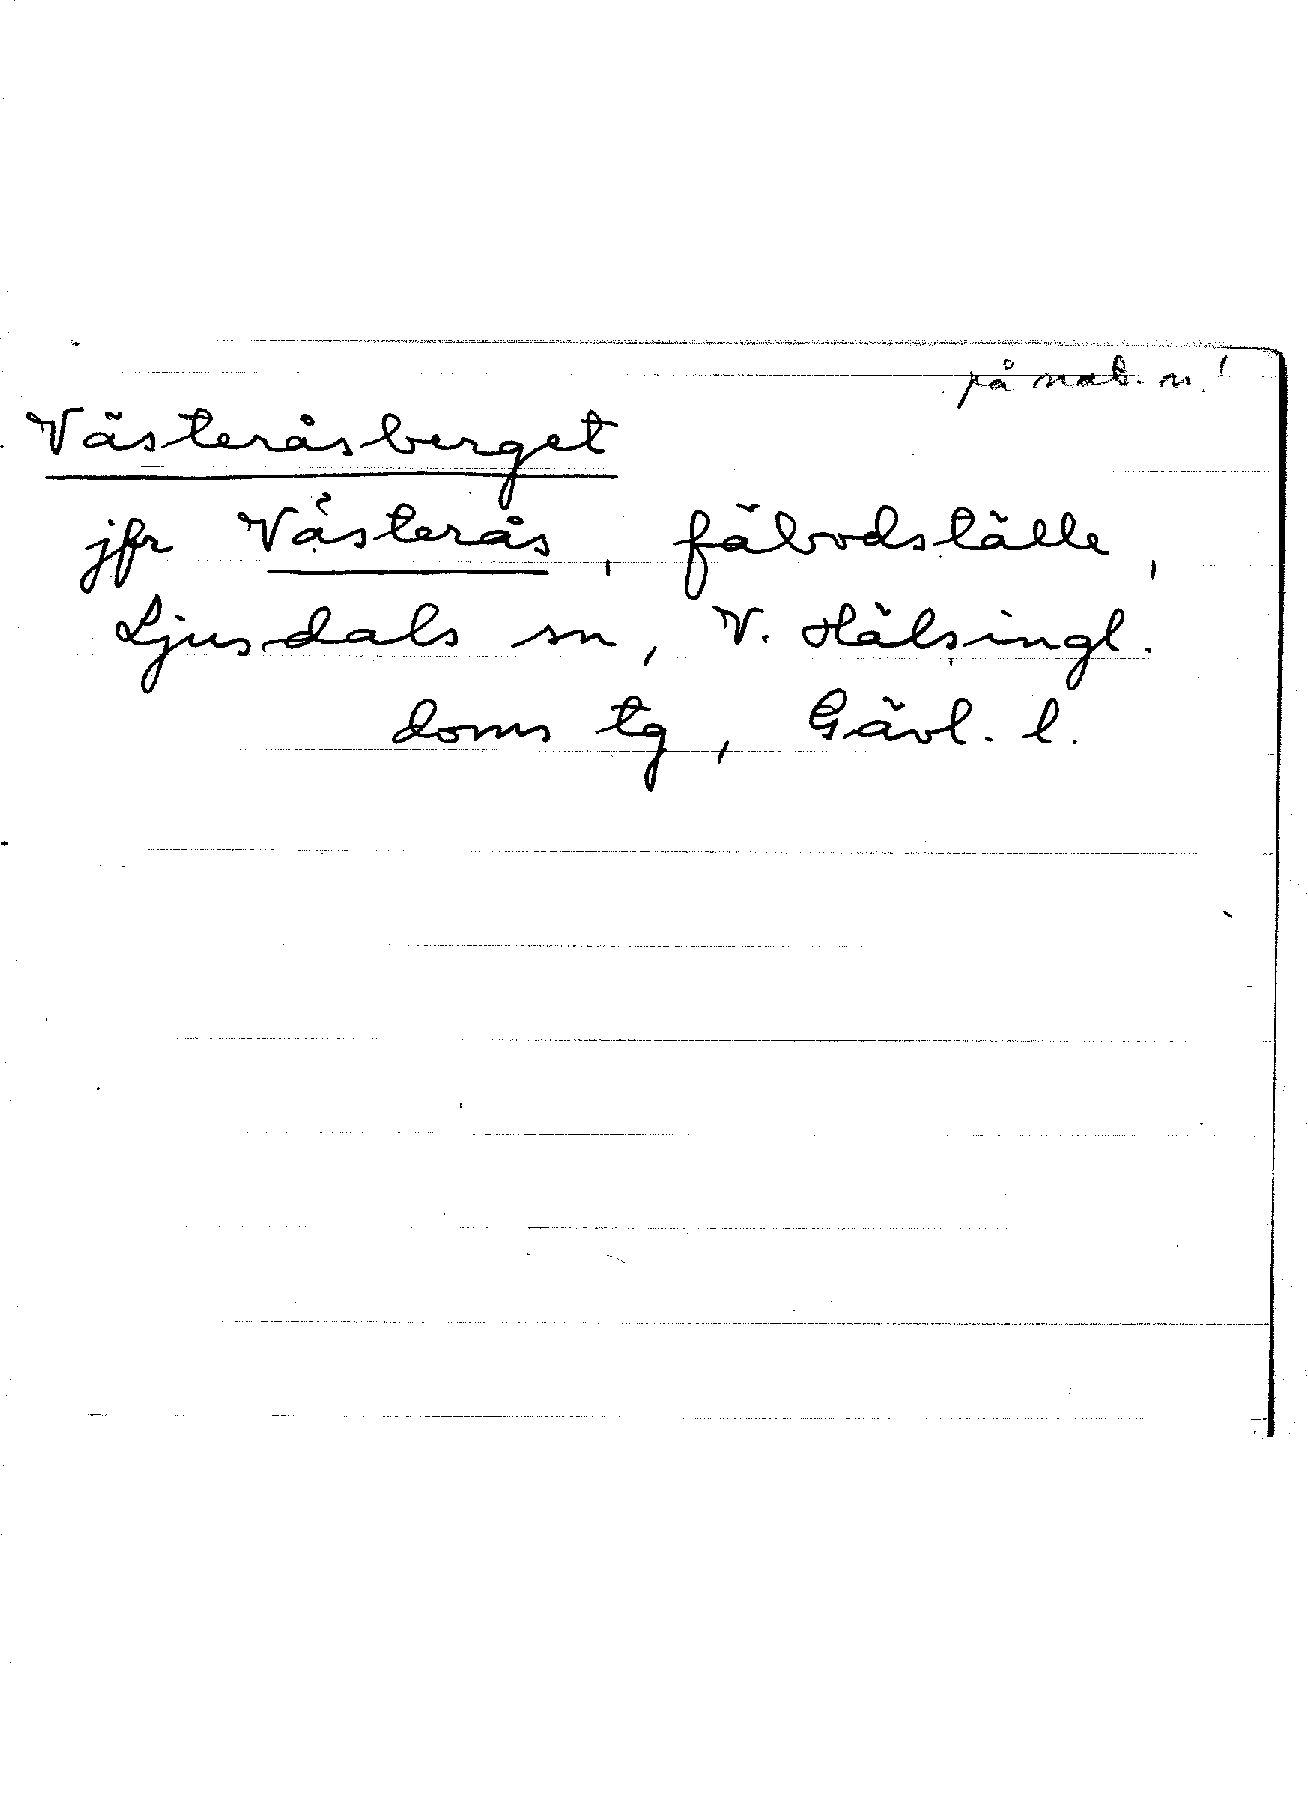 på nat. n.!
Västeråsberget
jfr Västerås, fäbodställe,
Ljusdals sn, V. Hälsingl.
doms tg, Gävl. l.